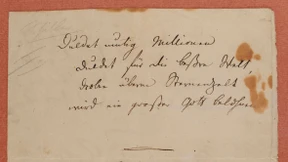 Duldet mutig Millionen
duldet für die beßre Welt
droben überm Sternenzelt
wird ein großer Gott belohnen